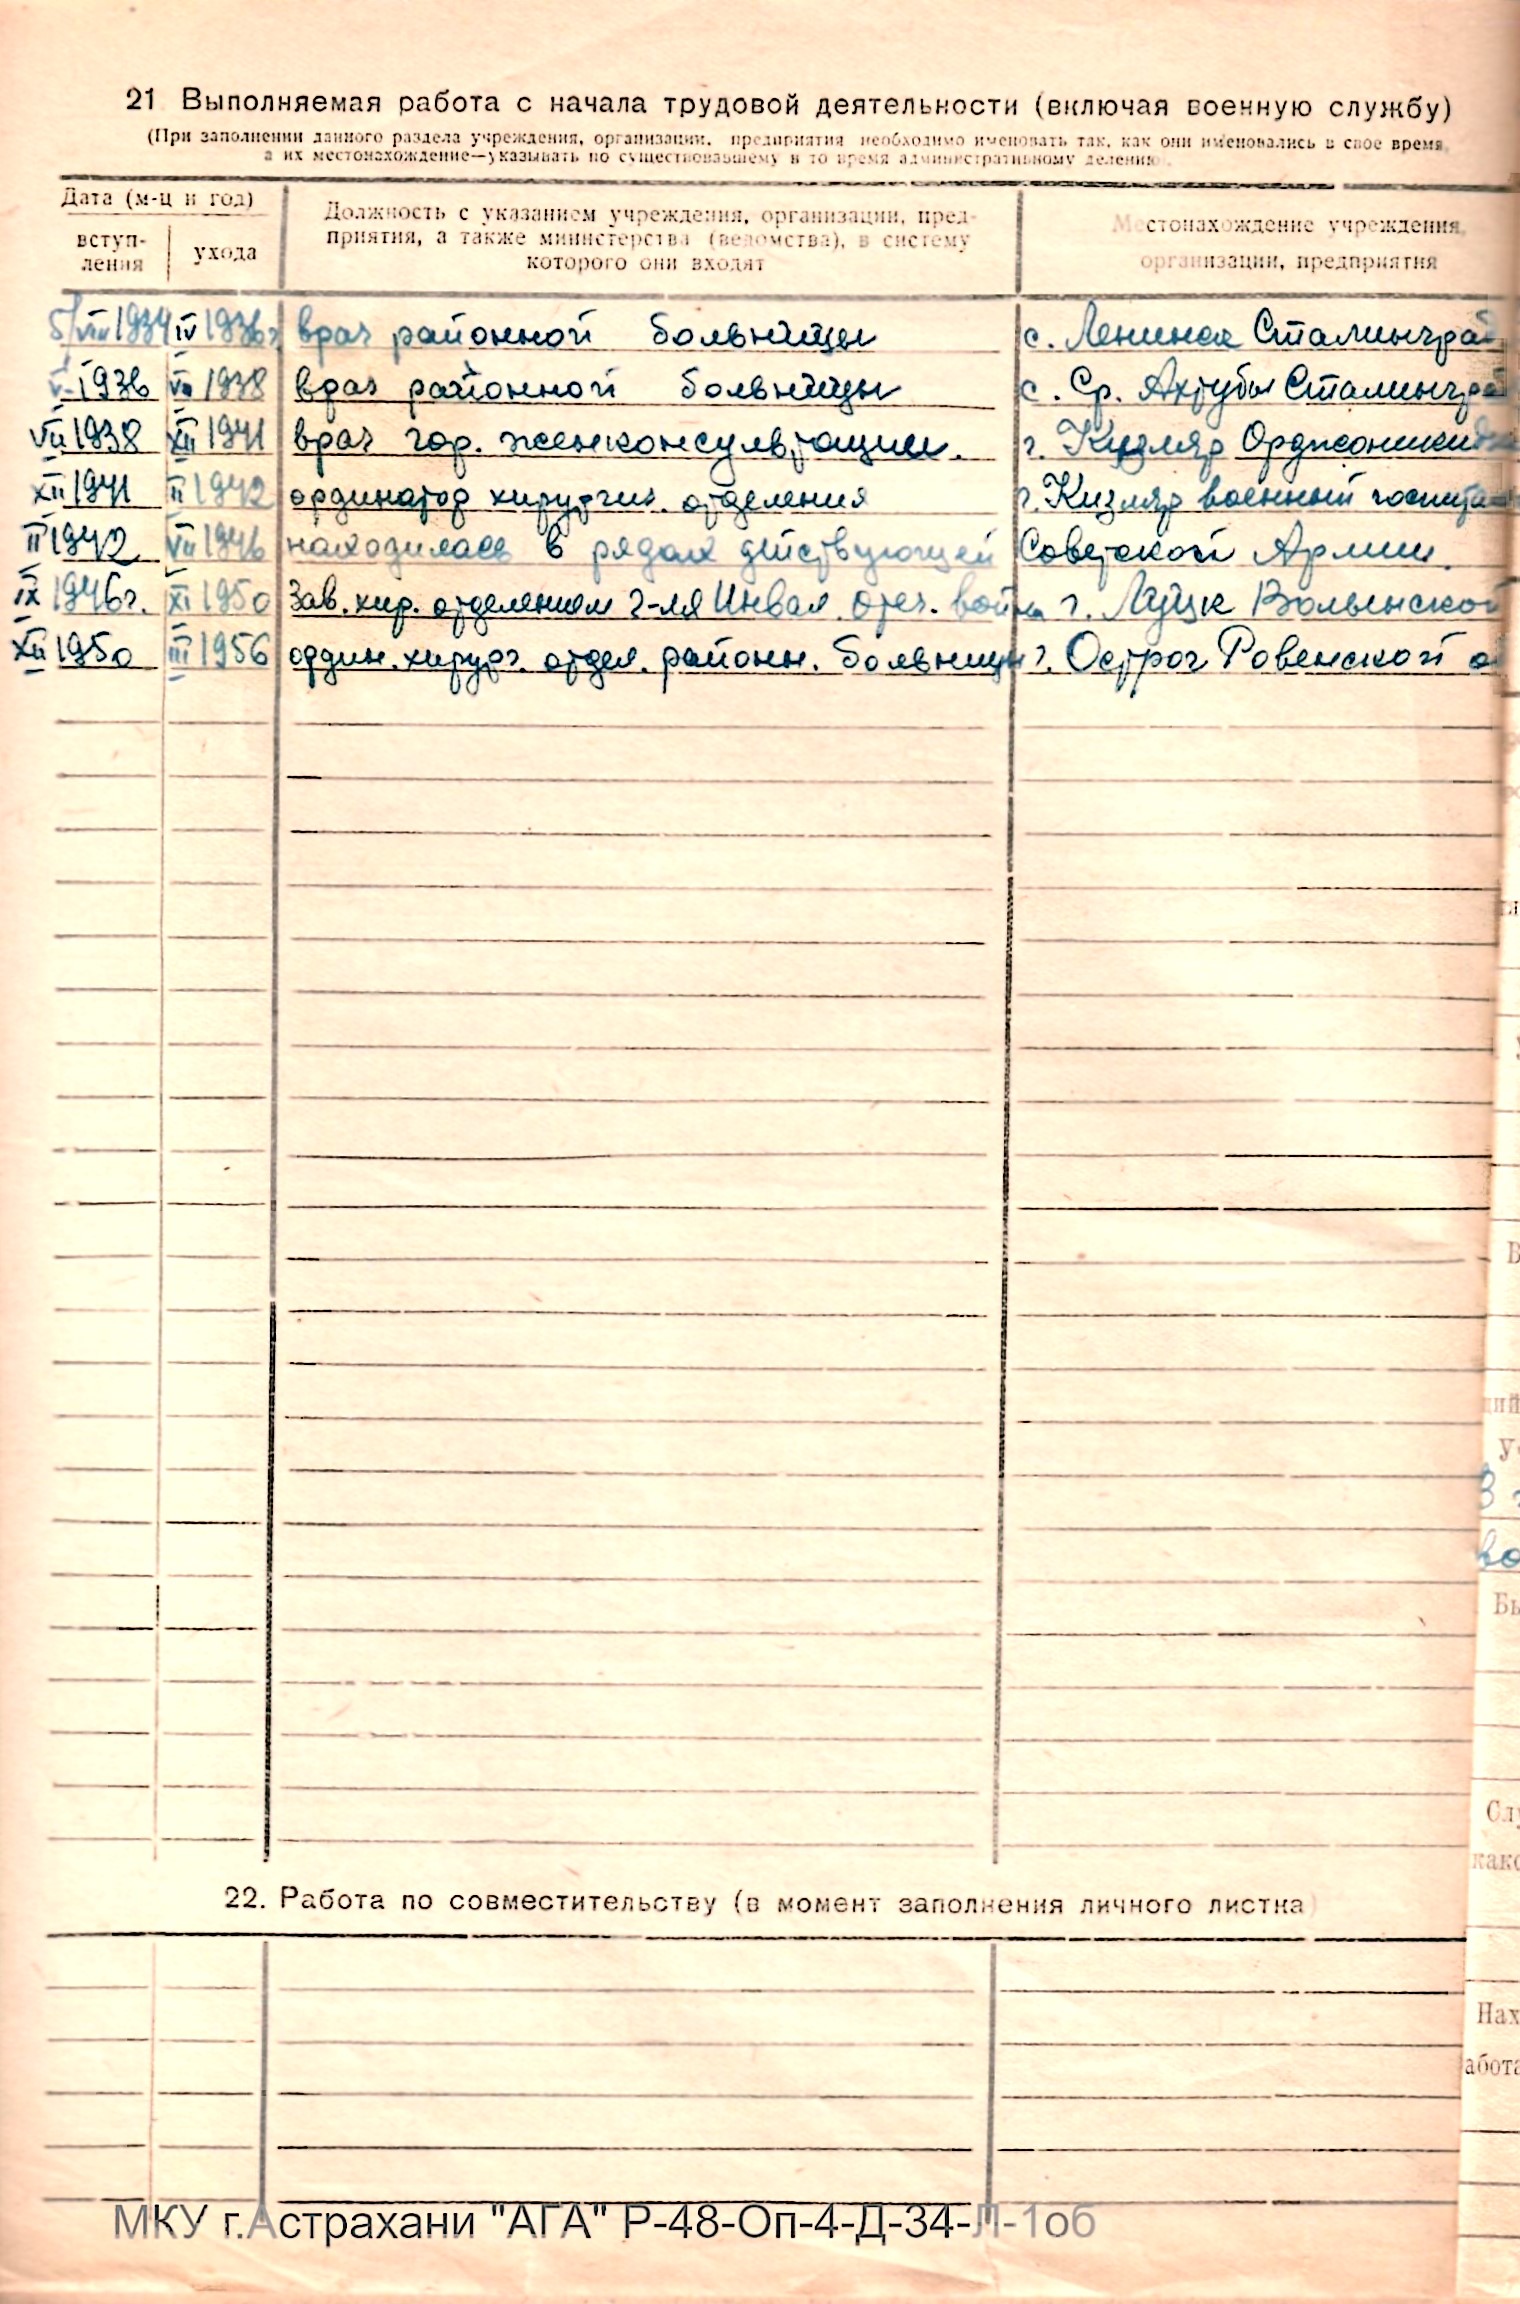 21 Выполняемая работа с начала трудовой деятельности (включая военную службу)
(При заполнении данного раздела учреждения, организации, предприятия необходимо именовать так, как они именовались в свое время,
а их местонахождение—указывать по существовавшему в то время административному делению).
Дата (м-ц и год)
вступ-
ления
ухода
Должность с указанием учреждения, организации, пред-
приятия, а также министерства (ведомства), в систему
которого они входят
Местонахождение учреждения,
организации, предприятия
5/VIII 1934 IV 1936г врач районной больницы с. Ленинск Сталинград
V-1936 VII 1938 врач районной больницы с. Ср. Ахтуба Сталинград
VII 1938 XII 1941 врач гор. женконсультации. г. Кизляр Орджоникидз
XII 1941 II 1942 ординатор хирургич. отделения г. Кизляр военный госпита
II 1942 VII 1946 находилась в рядах действующей Советской Армии.
IX 1946г. XI 1950 Зав. хир. отделением г-ля Инвал. отеч. войны г. Луцк Волынской
XII 1950 III 1956 ордин. хирург. отдел. районн. больницы г. Острог Ровенской о
22. Работа по совместительству (в момент заполнения личного листка)
В
ций
во
Бы
Слу
како
Нах
абота
МКУ г.Астрахани "АГА" Р-48-Оп-4-Д-34-Л-1об